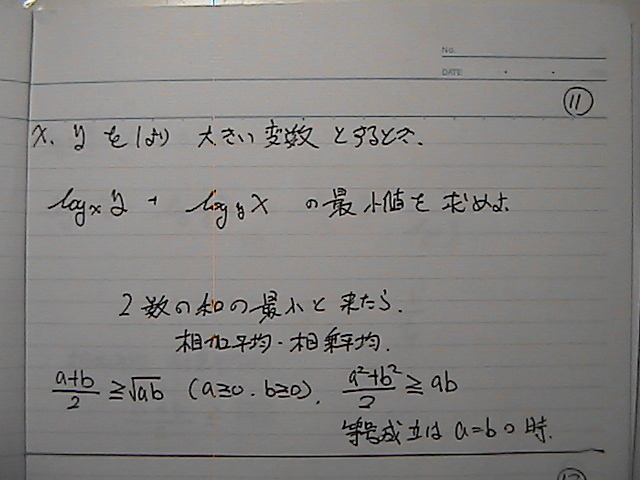 No.
DATE
⑪
x、yを1より 大きい変数 とするとき、
log_x y + log_y x の最小値を求めよ
2数の和の最小と来たら、
相加平均・相乗平均.
(a+b)/2 ≧ √ab (a≧0, b≧0), (a²+b²)/2 ≧ ab
等号成立は a=bの時.